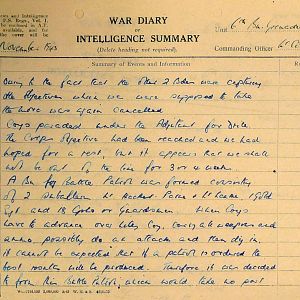 WAR DIARY
or
INTELLIGENCE SUMMARY
(Delete heading not required).
Unit 6th Bn. Grenadier
Commanding Officer Lt Col
November 1943
Summary of Events and Information
Owing to the fact that the other 2 Bdes were capturing
the objectives which we were supposed to take
the move was again cancelled
Coys paraded under the Adjutant for Drill.
The Corps objective had been reached and we had
hoped for a rest, but it appears that we shall
be in the line for 3 or 4 weeks.
A Bn Battle Patrol was formed consisting
of 2 Lt
Sgt and 18 Gdsmen or Guardsmen. When Coys
have to advance over hilly Coy, carrying weapons and
ammo, possibly do an attack and then dig in.
It cannot be expected that if a patrol is ordered the
best results will be produced. Therefore it was decided
to form this Battle Patrol, which would take no part